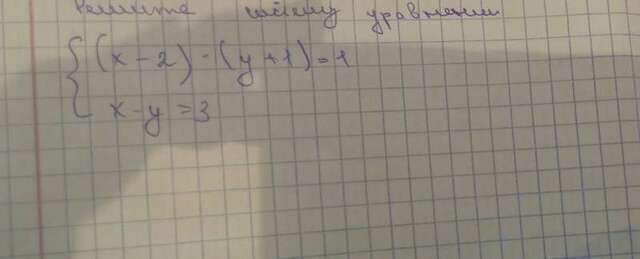 решите систему уравнений
(x-2)·(y+1)=1
x-y=3